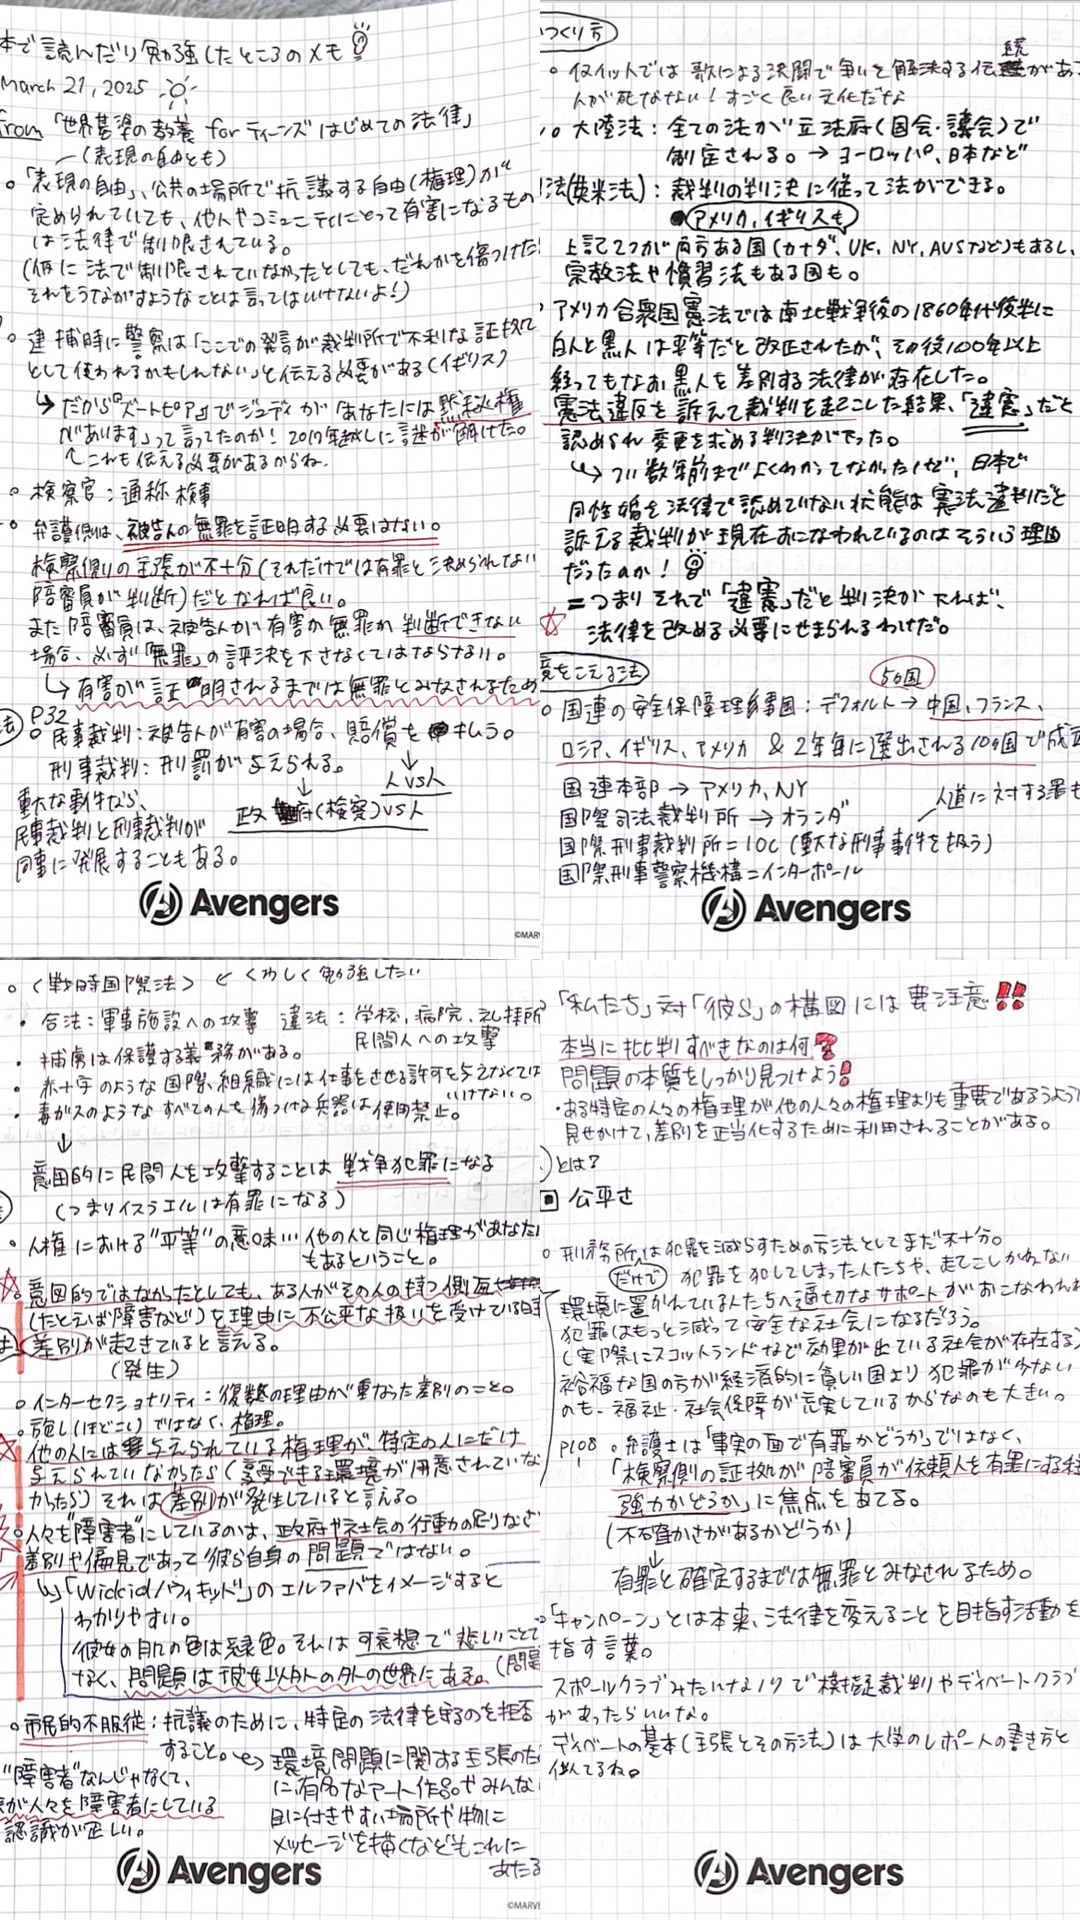 本で読んだり勉強したところのメモ
March 21, 2025
from「世界基準の教養 for ティーンズ はじめての法律」
(表現の自由とも)
○「表現の自由」、公共の場所で抗議する自由(権理)が
定められていても、他人やコミュニティにとって有害になるもの
は法律で制限されている。
(仮に法で制限されていなかったとしても、だれかを傷つけた
それをうながすようなことは言ってはいけないよ!)
○ 逮捕時に警察は「ここでの発言が裁判所で不利な証拠
として使われるかもしれない」と伝える必要がある(イギリス)
↳ だから『ズートピア』でジュディが「あなたには黙秘権
があります」って言ってたのか! 2017年越しに謎が解けた。
↖これも伝える必要があるからね。
○ 検察官:通称 検事
○ 弁護側は、被告人の無罪を証明する必要はない。
検察側の主張が不十分(それだけでは有罪と決められない
陪審員が判断)だとなれば良い。
また陪審員は、被告人が有害か無罪か判断できない
場合、必ず「無罪」の評決を下さなくてはならない。
↳ 有害が証明されるまでは無罪とみなされるため
法
P.32
○ 民事裁判:被告人が有害の場合、賠償を払う。
刑事裁判:刑罰が与えられる。
↓
人vs人
↓
政府(検察)vs人
重大な事件なら、
民事裁判と刑事裁判が
同事に発展することもある。
Avengers
©MAR
つくり方
○ イヌイットでは歌による決闘で争いを解決する伝統があ
人が死なない!すごく良い文化だな
○ 大陸法:全ての法が立法府(国会・議会)で
制定される。→ ヨーロッパ、日本など
法(英米法):裁判の判決に従って法ができる。
アメリカ、イギリスも
上記2つが両方ある国(カナダ、UK、NY、AUSなど)もあるし、
宗教法や慣習法もある国も。
アメリカ合衆国憲法では南北戦争後の1860年代後半に
白人と黒人は平等だと改正されたが、その後100年以上
経ってもなお黒人を差別する法律が存在した。
憲法違反を訴えて裁判を起こした結果、「違憲」だと
認められ変更を求める判決が下った。
↳ つい数年前までよくわかってなかったけど、日本で
同性婚を法律で認めていない状態は憲法違判だと
訴える裁判が現在おこなわれているのはそういう理由
だったのか!
=つまりそれで「違憲」だと判決が下れば、
☆ 法律を改める必要にせまられるわけだ。
境をこえる法
50国
○ 国連の安全保障理事国:デフォルト→中国、フランス、
ロシア、イギリス、アメリカ & 2年毎に選出される10ヵ国で成立
国連本部→アメリカ、NY
国際司法裁判所→オランダ
人道に対する罪も
国際刑事裁判所=IOC(重大な刑事事件を扱う)
国際刑事警察機構=インターポール
Avengers
○ 〈戦時国際法〉 ← くわしく勉強したい
・ 合法:軍事施設への攻撃 違法:学校、病院、礼拝所
民間人への攻撃
・ 捕虜は保護する義務がある。
・ 赤十字のような国際組織には仕事をさせる許可を与えなくては
いけない。
・ 毒ガスのようなすべての人を傷つける兵器は使用禁止。
↓
意図的に民間人を攻撃することは戦争犯罪になる
(つまりイスラエルは有罪になる)
○ 人権における“平等”の意味…他の人と同じ権理があなた
もあるということ。
☆○ 意図的ではなかったとしても、ある人がその人の持つ側面
(たとえば障害など)を理由に不公平な扱いを受けている時
は差別が起きていると言える。
(発生)
○ インターセクショナリティ:複数の理由が重なった差別のこと。
○ 施し(ほどこし)ではなく、権理。
☆○ 他の人には与えられている権理が、特定の人にだけ
与えられていなかたら(享受できる環境が用意されていな
かったら)それは差別が発生していると言える。
○ 人々を“障害者”にしているのは、政府や社会の行動の足りなさ
差別や偏見であって彼ら自身の問題ではない。
↳「Wickid/ウィキッド」のエルファバをイメージすると
わかりやすい。
彼女の肌の色は緑色。それは可哀想で悲しいことで
なく、問題は彼女以外の外の世界にある。(問題
○ 市民的不服従:抗議のために、特定の法律を守るのを拒否
すること。↳ 環境問題に関する主張のた
に有名なアート作品やみんな
目に付きやすい場所や物に
メッセージを描くなどもこれに
あたる
“障害者”なんじゃなくて、
が人々を障害者にしている
認識が正しい。
Avengers
©MARV
「私たち」対「彼ら」の構図には要注意!!
本当に批判すべきなのは何?
問題の本質をしっかり見つけよう!
・ある特定の人々の権理が他の人々の権理よりも重要であるよう
見せかけて、差別を正当化するために利用されることがある。
とは?
▣ 公平さ
○ 刑務所は犯罪を減らすための方法としてまだ不十分。
だけで
犯罪を犯してしまった人たちや、走てこしかねない
環境に置かれている人たちへ適切なサポートがおこなわれれ
犯罪はもっと減って安全な社会になるだろう。
(実際にスコットランドなど効果が出ている社会が存在する)
裕福な国の方が経済的に貧しい国より犯罪が少ない
のも、福祉・社会保障が充実しているからなのも大きい。
P108
○ 弁護士は「事実の面で有罪かどうか」ではなく、
「検察側の証拠が陪審員が依頼人を有罪にする程
強力かどうか」に焦点をあてる。
(不確かさがあるかどうか)
↓
有罪と確定するまでは無罪とみなされるため。
「キャンペーン」とは本来、法律を変えることを目指す活動を
指す言葉。
スポールクラブみたいなノリで模擬裁判やディベートクラブ
があったらいいな。
ディベートの基本(主張とその方法)は大学のレポートの書き方と
似てるね。
Avengers